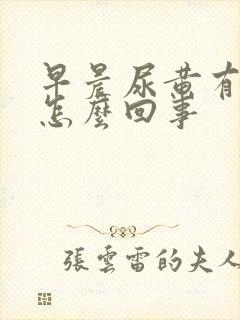 早晨尿黄有
怎麼回事
張雲雷的夫人